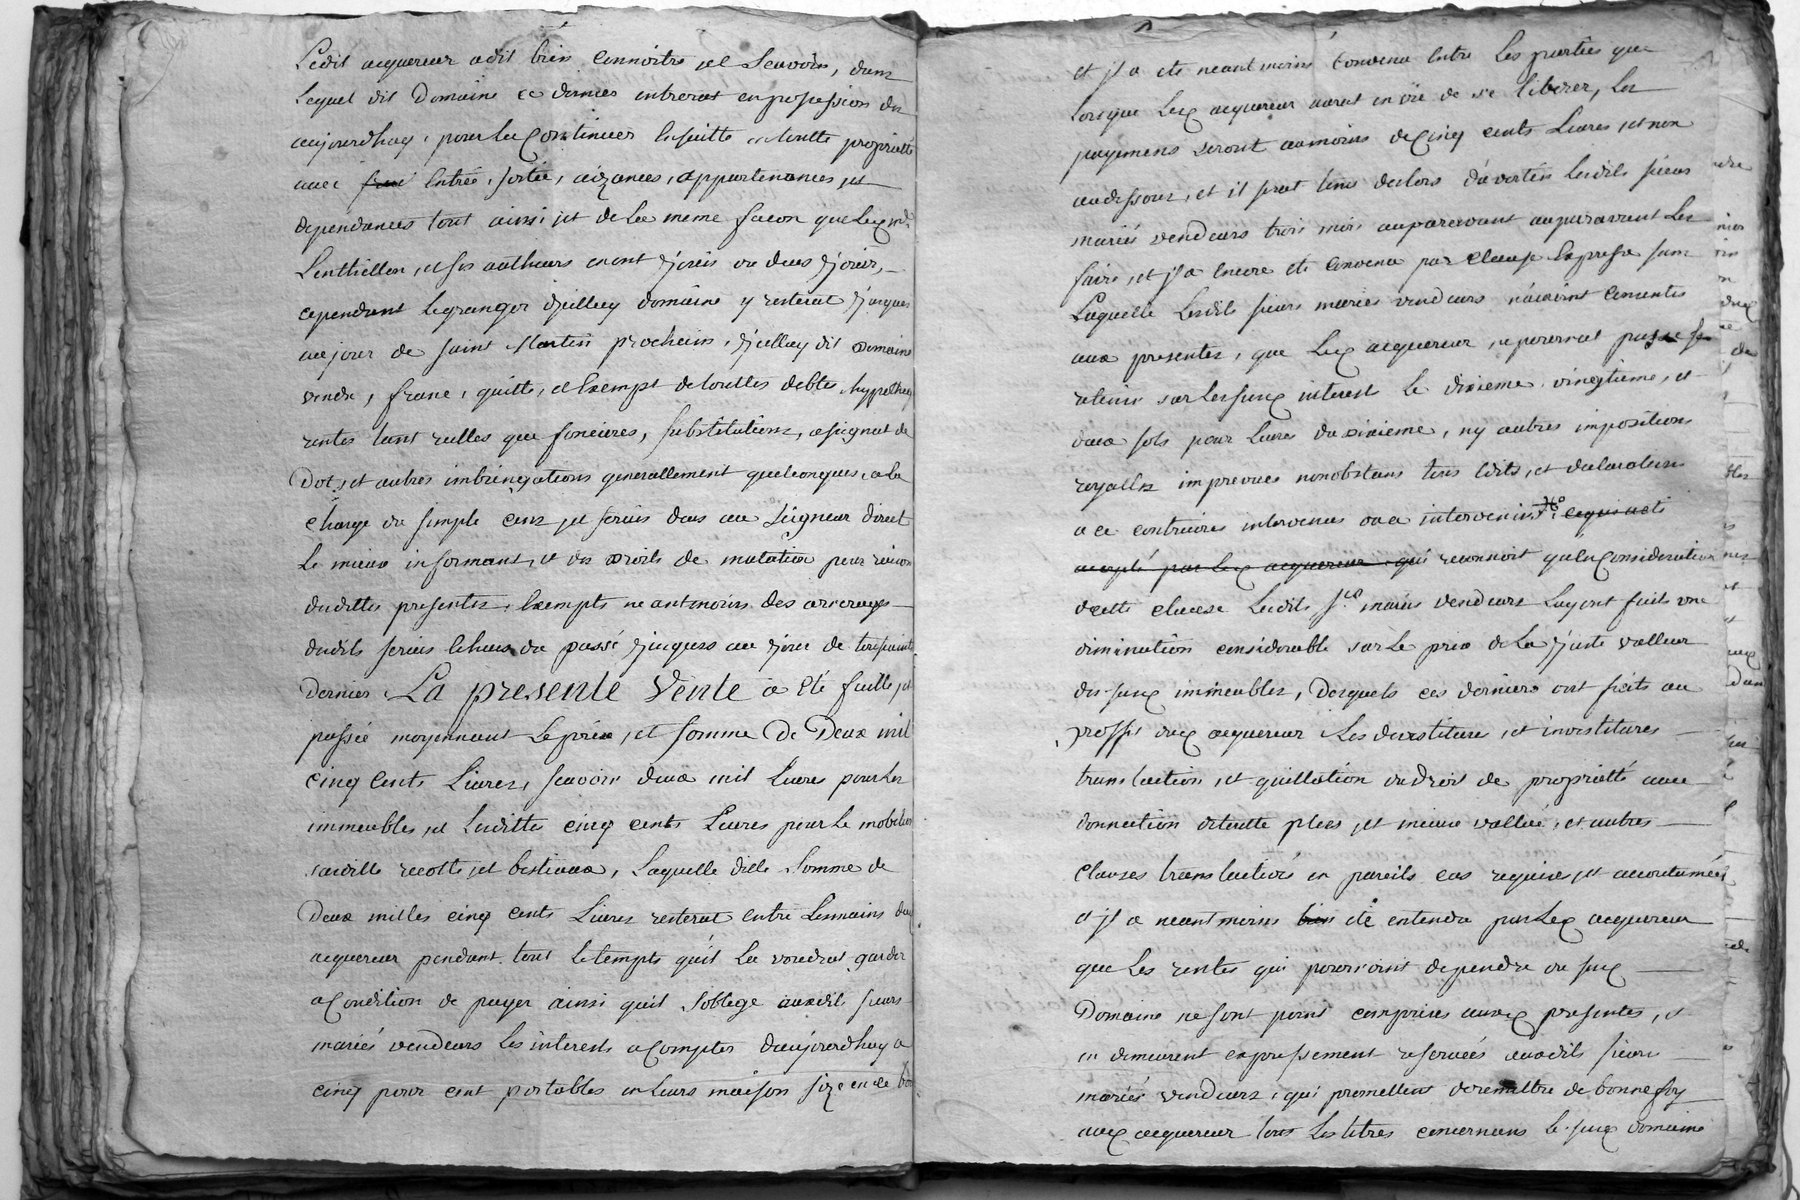 Ledit acquereur a dit bien connoitre et Scavoir, dans
Lequel dit Domaine ce dernier entrerat en possession des
aujourdhuy, pour la Continuer ensuitte a toutte proprietté
avec entrée, sortie, aizances, appartenances, et
dependances tout ainsi et de la meme facon que
et ses autheurs en ont jouis ou deus jouir,
cependant Legranger dicelluy domaine y resterat jusques
au jour de saint Martin prochain, icelluy dit Domaine
vendu, franc, quitte, et Exempt de touttes debtes, hypotheq
rentes tant reelles que foncieres, substitutions, assignat de
Dot, et autres imbringations generallement quelconques, a la
charge du simple cens et servis deus au Seigneur direct
Le mieux informant, et des Droits de mutation pour raison
desdittes presentes, Exempts neantmoins des arrerages
desdits servis Echeus du passé jusques au jour de
Dernier. La presente Vente a Eté faitte, et
passée moyennant Le prix, et somme De Deux mil
cinq Cents Livres, scavoir deux mil Livres pour Les
immeubles, et Lesdittes cinq cents Livres pour Le mobilier
susditte recolte, et bestiaux, Laquelle ditte Somme de
Deux milles cinq cents Livres resterat entre Les mains dud
acquereur pendant tout Le tempts quil La voudrat garder
a Condition de payer ainsi quil Soblege auxdits sieurs
mariés vendeurs Les interests a Compter daujourdhuy a
cinq pour cent portables en Leurs maison size en ce
et il a eté neantmoins Convenu Entre Les parties que
lorsque Led acquereur aurat envie de se liberer, Les
payemens seront aumoins de Cinq cents Livres, et non
audessous, et il serat tenu deslors d'avertir Lesdits sieurs
mariés vendeurs trois mois auparavant auparavant Les
faire, et il a Encore eté convenu par clause Expresse sans
Laquelle Lesdits sieurs mariés vendeurs n'auroint consentis
aux presentes, que Led acquereur, ne pourroat pas se
retenir sur les susd interest Le dixieme, vingtieme, et
deux sols pour Livres du dixieme, ny autres impositions
royalles imprevues nonobstans tous Edits, et declarations
a ce contraires intervenus ou a intervenir, ce qui a eté
accepté par Led acquereur qui reconnoit qu'en Consideration
de cette clause Lesdits srs mariés vendeurs Luy ont fait une
diminution considerable sur Le prix de La juste valleur
des susd immeubles, Desquels ces derniers ont faits au
proffit dud acquereur Les devestiture, et investitures
translaction, et quittation du Droit de proprietté avec
donnation de toutte plus, et mieux vallüe, et autres
Clauses translactives en pareils cas requises, et accoutumées
et il a neantmoins bien eté entendu par Led acquereur
que Les rentes qui pourroint dependre du susd
Domaine ne sont point comprises auxd presentes, et
en demeurent expressement reservées auxdits sieurs
mariés vendeurs, qui promettent deremettre de bonne foy
aud acquereur tous Les titres concernans le susd domaine